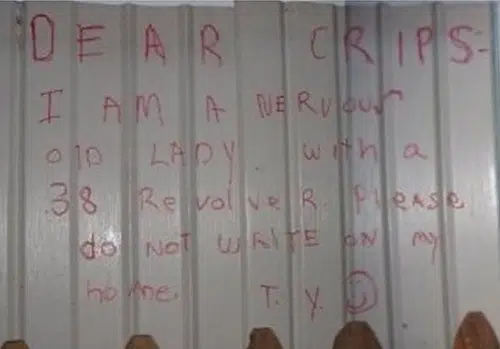 DEAR CRIPS:
I AM A NERVOUS
OlD LADY. with a
.38 RevolveR. PlEASE
do NOT WRITE ON my
home. T.Y. ☺